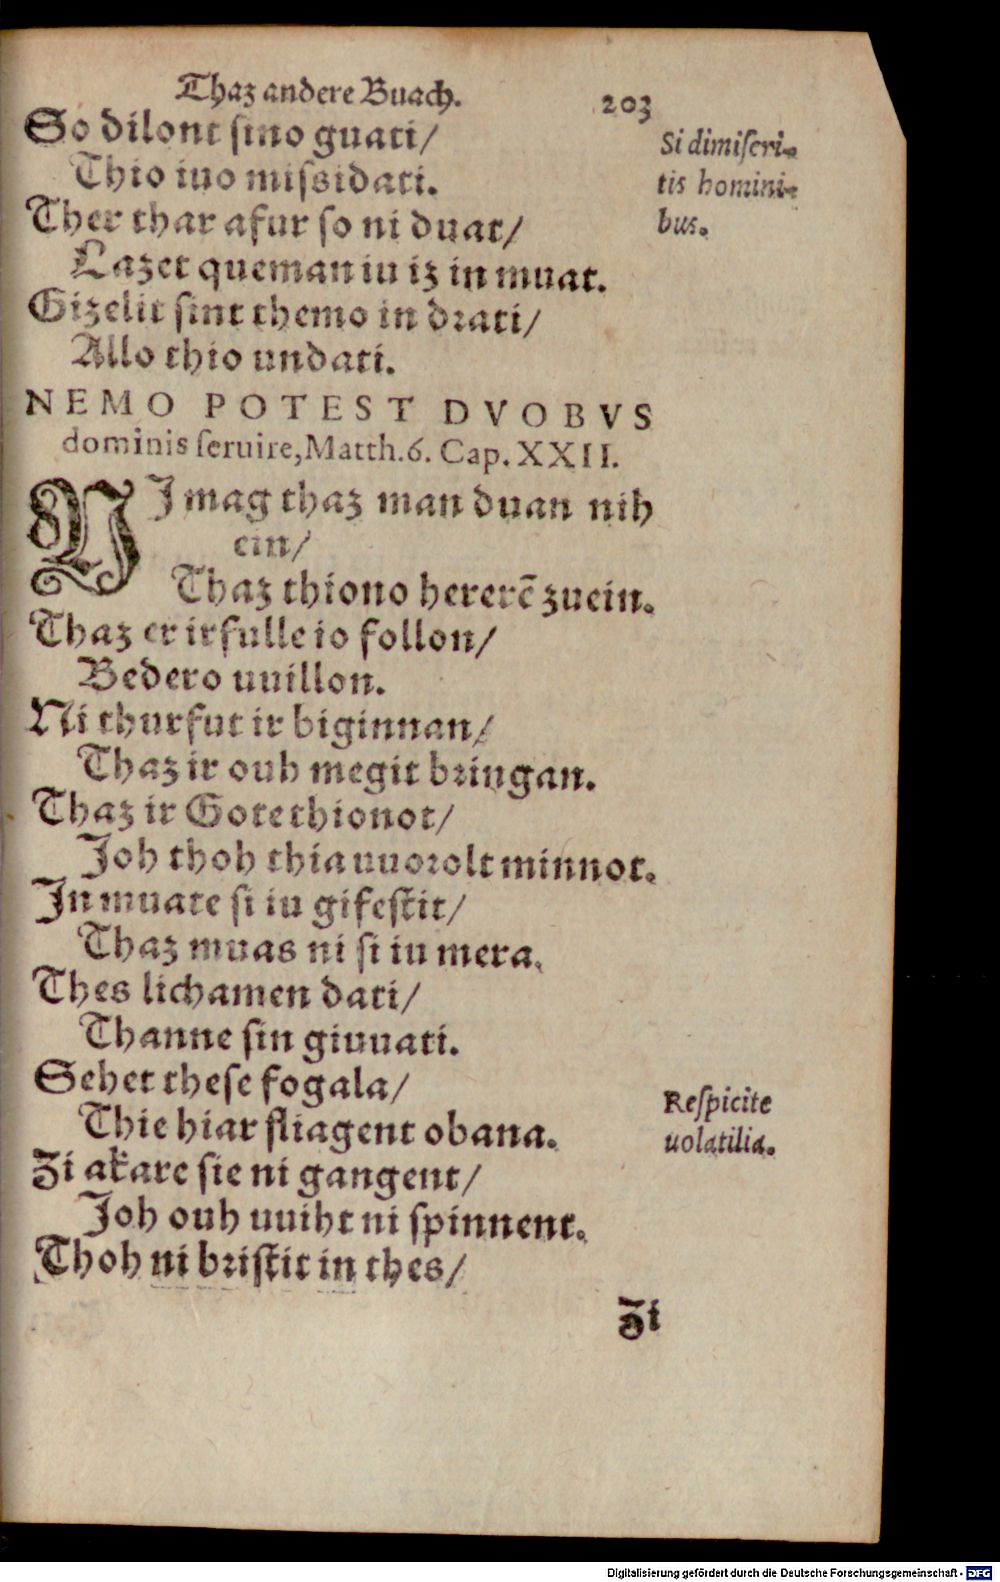 Thaz andere Buach. 203
So dilont sino guati/
Thio iuo missidati.
Ther thar afur so ni duat/
Lazet queman iu iz in muat.
Gizelit sint themo in drati/
Allo thio undati.
Si dimiseri-
tis homini-
bus.
NEMO POTEST DVOBVS
dominis seruire, Matth. 6. Cap. XXII.
NJ mag thaz man duan nih
ein/
Thaz thiono hererē zuein.
Thaz er irfulle io follon/
Bedero uuillon.
Ni thurfut ir biginnan/
Thaz ir ouh megit bringan.
Thaz ir Gote thionot/
Joh thoh thia uuorolt minnot.
In muate si iu gifestit/
Thaz muas ni si iu mera.
Thes lichamen dati/
Thanne sin giuuati.
Sehet these fogala/
Thie hiar fliagent obana.
Zi akare sie ni gangent/
Joh ouh uuiht ni spinnent.
Thoh ni bristit in thes/
Respicite
uolatilia.
Zi
Digitalisierung gefördert durch die Deutsche Forschungsgemeinschaft - DFG